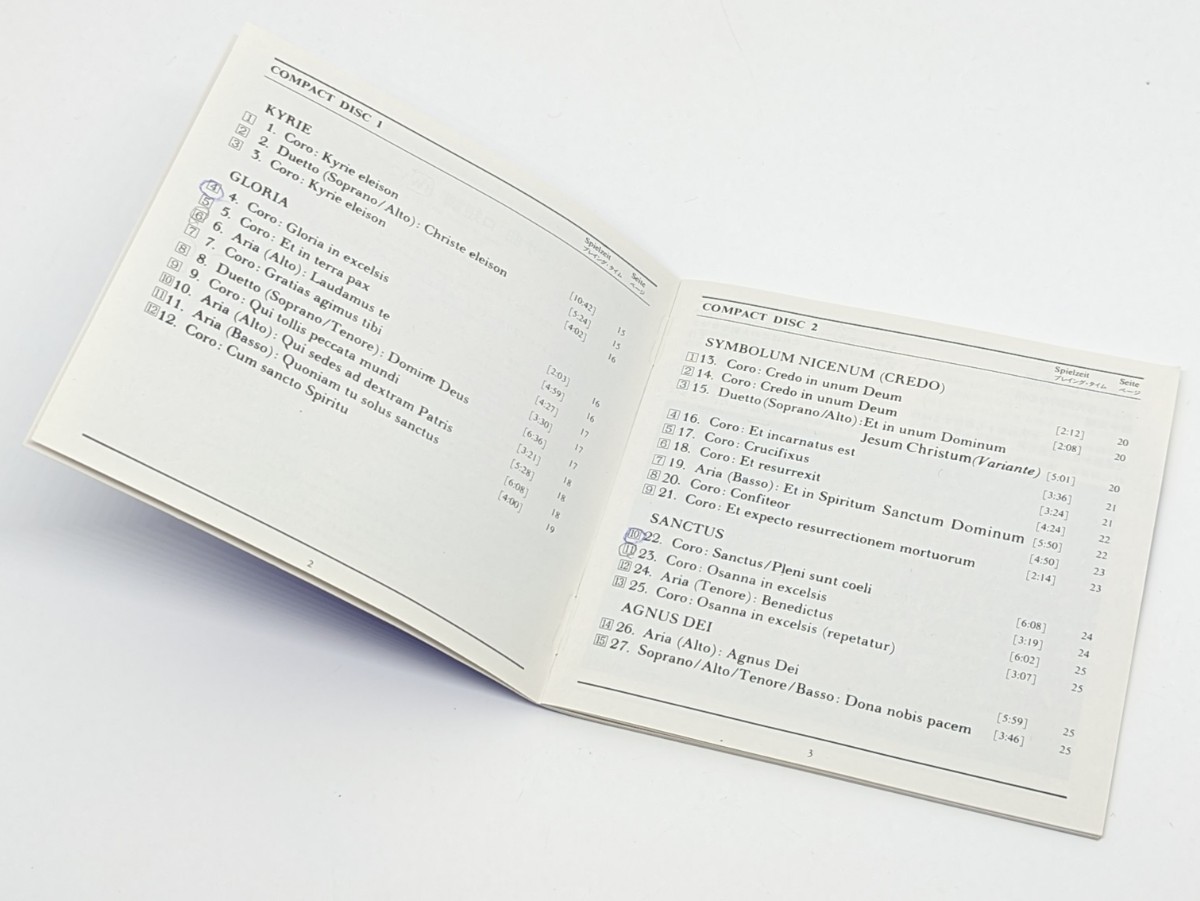 COMPACT DISC 1
Spielzeit Seite
プレイング・タイム ページ
KYRIE
1 1. Coro: Kyrie eleison [10:42] 15
2 2. Duetto (Soprano/Alto): Christe eleison [5:24] 15
3 3. Coro: Kyrie eleison [4:02] 16
GLORIA
4 4. Coro: Gloria in excelsis [2:03] 16
5 5. Coro: Et in terra pax [4:59] 16
6 6. Aria (Alto): Laudamus te [4:27] 17
7 7. Coro: Gratias agimus tibi [3:30] 17
8 8. Duetto (Soprano/Tenore): Domine Deus [6:36] 18
9 9. Coro: Qui tollis peccata mundi [3:21] 18
10 10. Aria (Alto): Qui sedes ad dextram Patris [5:28] 18
11 11. Aria (Basso): Quoniam tu solus sanctus [6:08]
12 12. Coro: Cum sancto Spiritu [4:00] 19
2
COMPACT DISC 2
Spielzeit Seite
プレイング・タイム ページ
SYMBOLUM NICENUM (CREDO)
1 13. Coro: Credo in unum Deum [2:12] 20
2 14. Coro: Credo in unum Deum [2:08] 20
3 15. Duetto (Soprano/Alto): Et in unum Dominum
Jesum Christum (Variante) [5:01] 20
4 16. Coro: Et incarnatus est [3:36] 21
5 17. Coro: Crucifixus [3:24] 21
6 18. Coro: Et resurrexit [4:24] 22
7 19. Aria (Basso): Et in Spiritum Sanctum Dominum [5:50] 22
8 20. Coro: Confiteor [4:50] 23
9 21. Coro: Et expecto resurrectionem mortuorum [2:14] 23
SANCTUS
10 22. Coro: Sanctus/Pleni sunt coeli [6:08] 24
11 23. Coro: Osanna in excelsis [3:19] 24
12 24. Aria (Tenore): Benedictus [6:02] 25
13 25. Coro: Osanna in excelsis (repetatur) [3:07] 25
AGNUS DEI
14 26. Aria (Alto): Agnus Dei [5:59] 25
15 27. Soprano/Alto/Tenore/Basso: Dona nobis pacem [3:46] 25
3